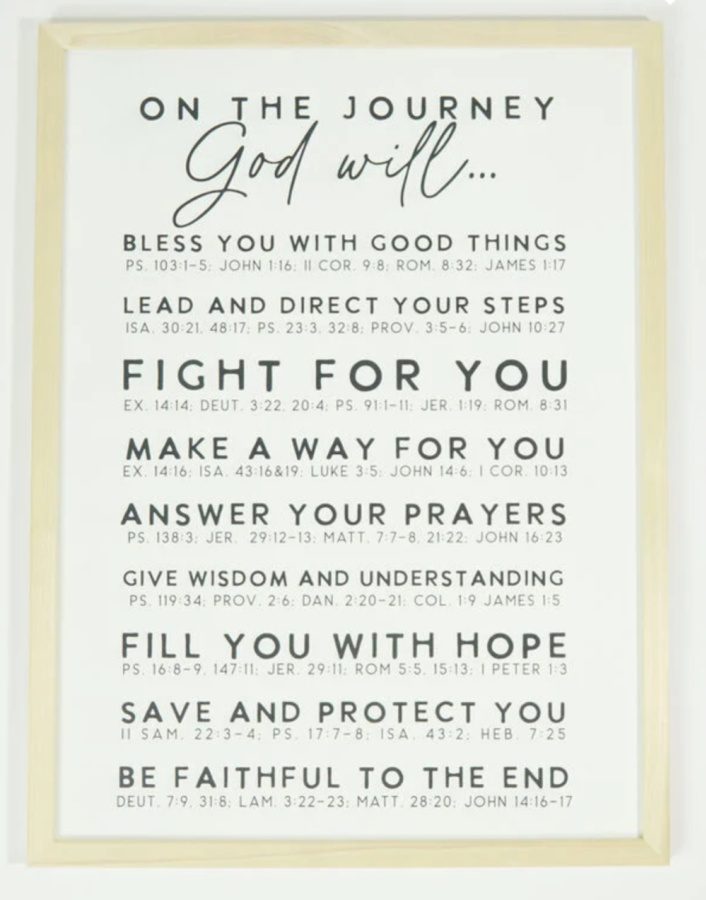 ON THE JOURNEY
God will...
BLESS YOU WITH GOOD THINGS
PS. 103:1-5; JOHN 1:16; II COR. 9:8; ROM. 8:32; JAMES 1:17
LEAD AND DIRECT YOUR STEPS
ISA. 30:21, 48:17; PS. 23:3, 32:8; PROV. 3:5-6; JOHN 10:27
FIGHT FOR YOU
EX. 14:14; DEUT. 3:22, 20:4; PS. 91:1-11; JER. 1:19; ROM. 8:31
MAKE A WAY FOR YOU
EX. 14:16; ISA. 43:16&19; LUKE 3:5; JOHN 14:6; I COR. 10:13
ANSWER YOUR PRAYERS
PS. 138:3; JER. 29:12-13; MATT. 7:7-8, 21:22; JOHN 16:23
GIVE WISDOM AND UNDERSTANDING
PS. 119:34; PROV. 2:6; DAN. 2:20-21; COL. 1:9 JAMES 1:5
FILL YOU WITH HOPE
PS. 16:8-9, 147:11; JER. 29:11; ROM 5:5, 15:13; I PETER 1:3
SAVE AND PROTECT YOU
II SAM. 22:3-4; PS. 17:7-8; ISA. 43:2; HEB. 7:25
BE FAITHFUL TO THE END
DEUT. 7:9, 31:8; LAM. 3:22-23; MATT. 28:20; JOHN 14:16-17